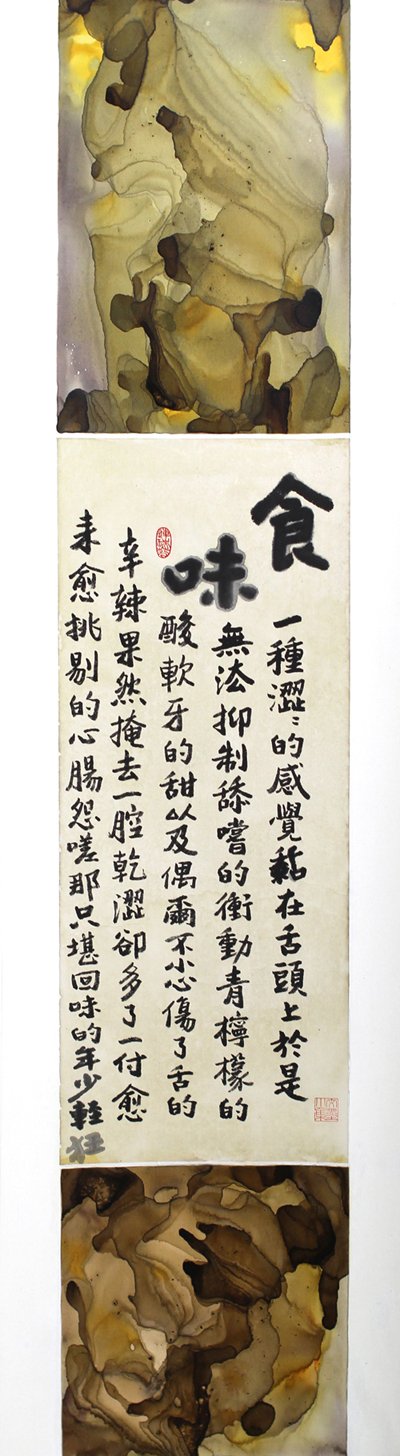 食味
一種澀〻的感覺黏在舌頭上於是
無法抑制舔嚐的衝動青檸檬的
酸軟牙的甜以及偶爾不小心傷了舌的
辛辣果然掩去一腔乾澀卻多了一付愈
来愈挑剔的心腸怨嗟那只堪回味的年少輕狂